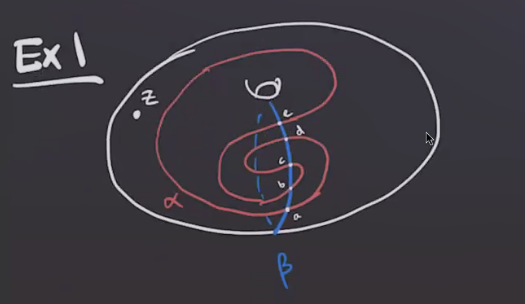 Ex 1
z
e
d
c
b
a
α
β